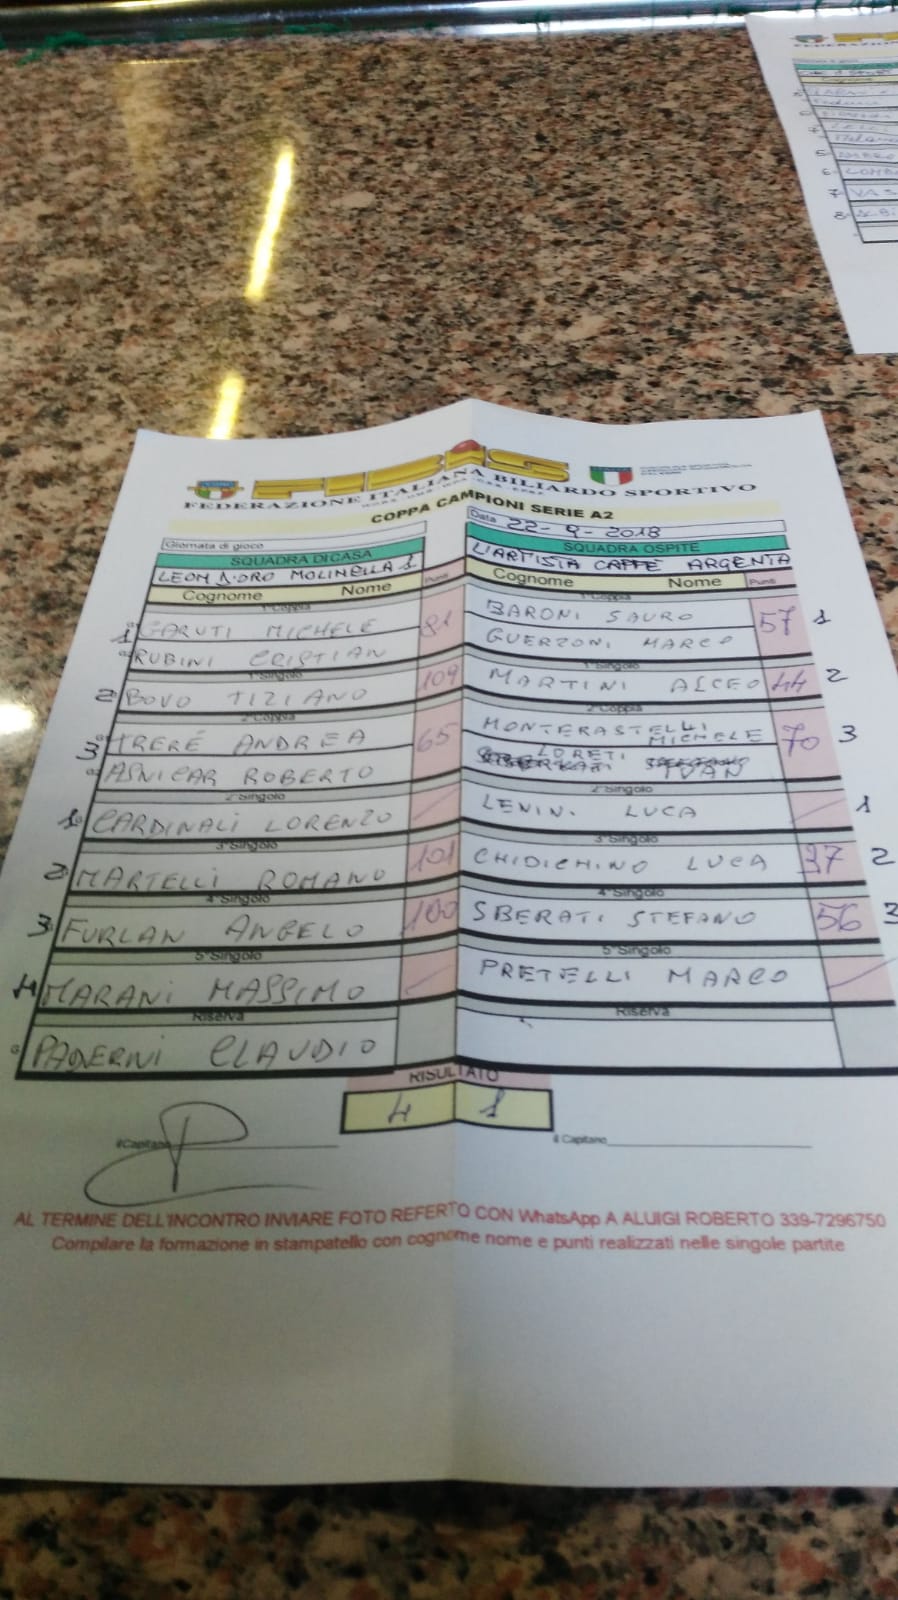 FIBIS
FEDERAZIONE ITALIANA BILIARDO SPORTIVO
COPPA CAMPIONI SERIE A2
Giornata di gioco
Data 22-9-2018
SQUADRA DI CASA
SQUADRA OSPITE
LEON D'ORO MOLINELLA 1
L'ARTISTA CAFFE ARGENTA
Cognome Nome Punti
Cognome Nome Punti
1°Coppia
1°Coppia
1 GARUTI MICHELE 81
BARONI SAURO 57 1
RUBINI CRISTIAN
GUERZONI MARCO
1°Singolo
1°Singolo
2 BOVO TIZIANO 109
MARTINI ALCEO 44 2
2°Coppia
2°Coppia
3 TRERÉ ANDREA 65
MONTERASTELLI MICHELE 70 3
ASNICAR ROBERTO
LORETI IVAN
2°Singolo
2°Singolo
1 CARDINALI LORENZO
LENIN. LUCA 1
3°Singolo
3°Singolo
2 MARTELLI ROMANO 101
CHIDICHINO LUCA 37 2
4°Singolo
4°Singolo
3 FURLAN ANGELO 100
SBERATI STEFANO 56 3
5°Singolo
5°Singolo
4 MARANI MASSIMO
PRETELLI MARCO
Riserva
Riserva
PADERNI CLAUDIO
RISULTATO
4 1
il Capitano
il Capitano
AL TERMINE DELL'INCONTRO INVIARE FOTO REFERTO CON WhatsApp A ALUIGI ROBERTO 339-7296750
Compilare la formazione in stampatello con cognome nome e punti realizzati nelle singole partite